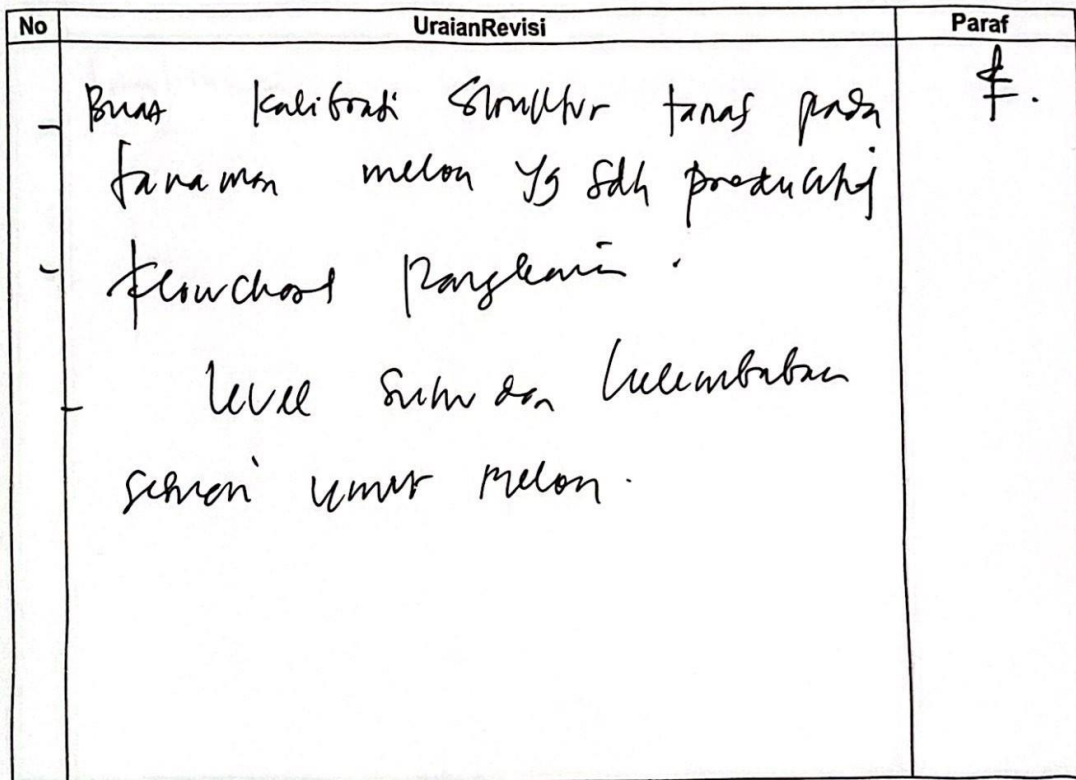 No UraianRevisi Paraf
- Buat kalibrasi struktur tanah pada
tanaman melon yg sdh produktif
- Flowchart rangkaian.
- Level suhu dan kelembaban
sesuai umur melon.